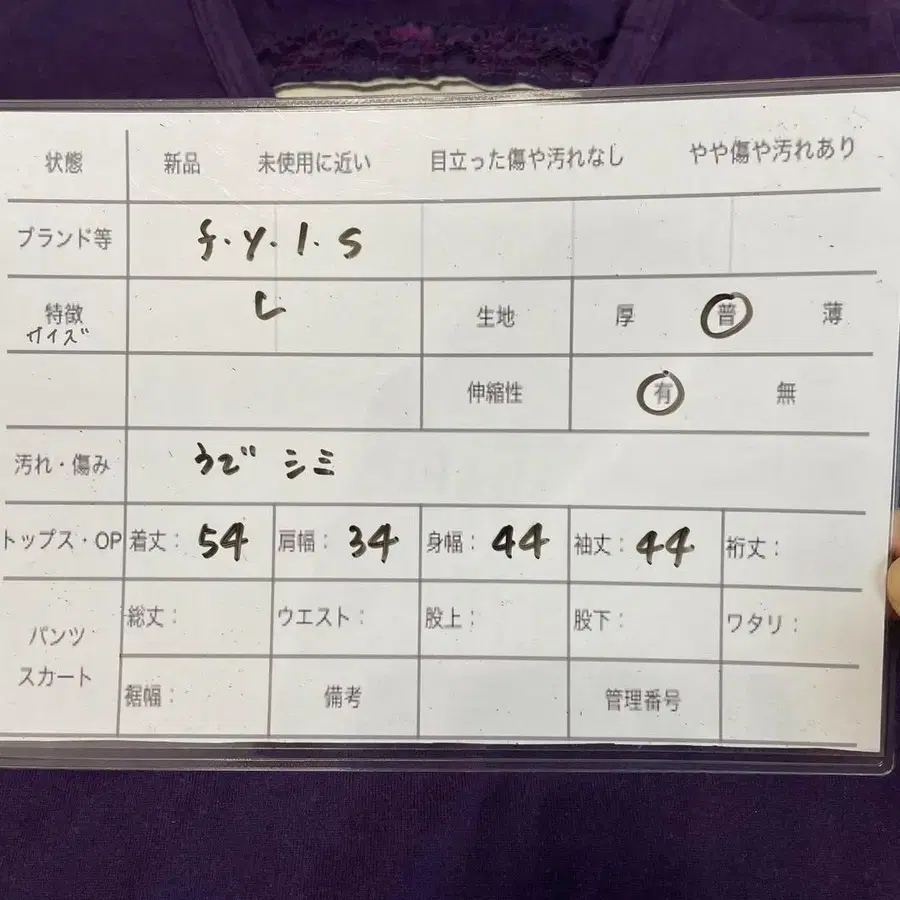 状態 新品 未使用に近い 目立った傷や汚れなし やや傷や汚れあり
ブランド等 f.y.l.s
特徴 L 生地 厚 普 薄
サイズ
伸縮性 有 無
汚れ・傷み うで シミ
トップス・OP 着丈: 54 肩幅: 34 身幅: 44 袖丈: 44 裄丈:
パンツ スカート 総丈: ウエスト: 股上: 股下: ワタリ:
裾幅: 備考 管理番号